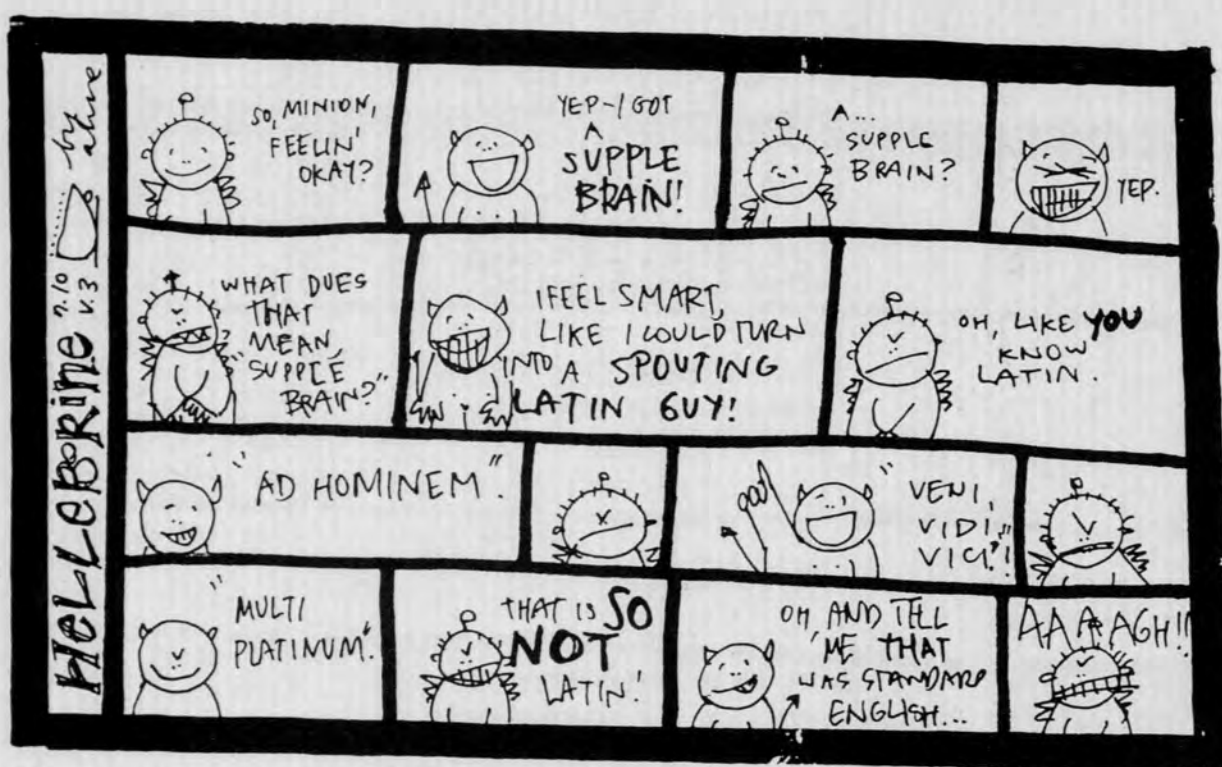 HELLEBORINE
7.10
V.3
by
SO, MINION,
FEELIN'
OKAY?
YEP-I GOT
A
SUPPLE
BRAIN!
A...
SUPPLE
BRAIN?
YEP.
WHAT DUES
THAT
MEAN,
"SUPPLE
BRAIN?"
I FEEL SMART,
LIKE I COULD TURN
INTO A SPOUTING
LATIN GUY!
OH, LIKE YOU
KNOW
LATIN.
"AD HOMINEM".
"VENI,
VIDI,
VICI"!
"MULTI
PLATINUM".
THAT IS SO
NOT
LATIN!
OH, AND TELL
ME THAT
WAS STANDARD
ENGLISH...
AAAAGH!!